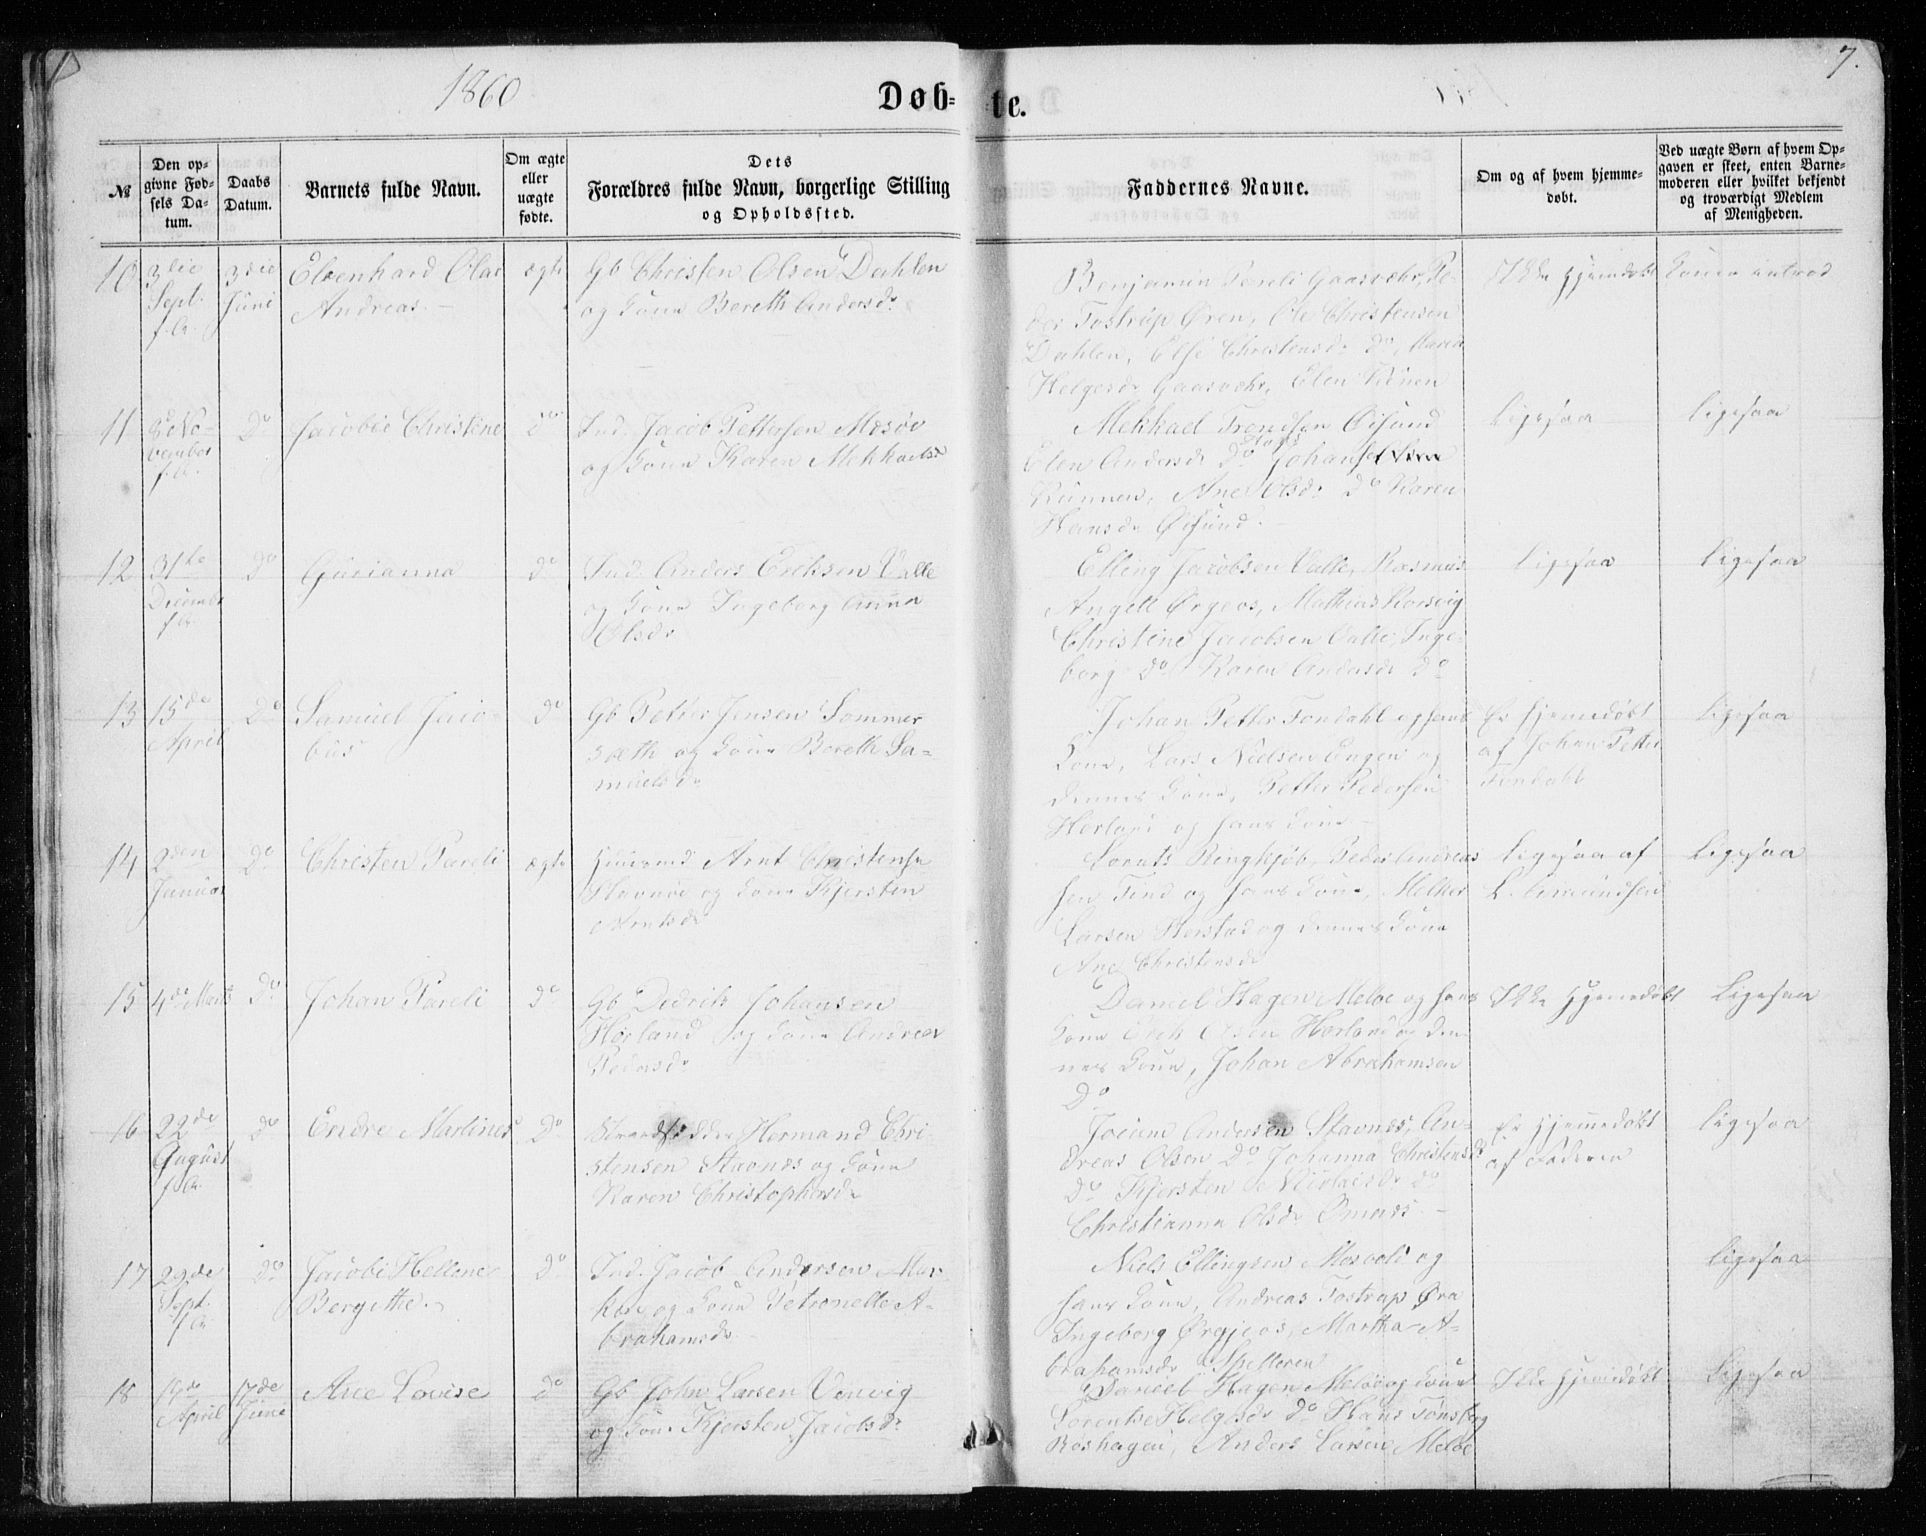 1860
Døb-
te.
7.
№
Den op-
givne Fød-
sels Da-
tum.
Daabs
Datum.
Barnets fulde Navn.
Om ægte
eller
uægte
fødte.
Dets
Forældres fulde Navn, borgerlige Stilling
og Opholdssted.
Faddernes Navne.
Om og af hvem hjemme-
døbt.
Ved uægte Børn af hvem Op-
gaven er skeet, enten Barne-
moderen eller hvilket bekjendt
og troværdigt Medlem
af Menigheden.
10
3die
Sept.
f. A.
3die
Juni
Elvenhard Olai
Andreas.
ægte
Gb Christen Olsen Dahlen
og Kone Bereth Andersdr
Benjamin Pareli Gaasvær, Pe-
der Tostrup Øren, Ole Christensen
Dahlen, Else Christensdr Do, Maria
Helgesdr Gaasvær, Elen
Ikke hjemdøbt
Konen introd
11
8de No-
vember
f. A.
Do
Jacobie Christine
do
Ind. Jacob Pettersen Mesøe
og Kone Karen Mekkaelsdr
Mekkael Trondsen Øisund
Elen Andersdr Do Johan
Ane Olsdr Do Karen
Hansdr Øisund.
Ligesaa
Ligesaa
12
31te
Decembr
f. A.
Do
Gurianna
do
Ind. Anders Eriksen Valle
og Kone Ingeborg Anna
Olsdr
Elling Jacobsen Valle, Rasmus
Angell Ørgeos, Mathias Korsvig
Christine Jacobsen Valle, Inge-
borg do Karen Andersdr do
Ligesaa
Ligesaa
13
15de
April
Do
Samuel Jaco-
bus
do
Gb Petter Jensen Sommer
sæth og Kone Bereth Sa-
muelsdr
Johan Petter Fondahl og hans
Kone, Lars Nielsen Engen og
dennes Kone, Petter Pedersen
Hørland og hans Kone
Er hjemedøbt
af Johan Petter
Fondahl
Ligesaa
14
2den
Januar
Do
Christen Pareli
ægte
Huusmd Arnt Christensen
Stavnæs og Kone Kjersten
Arntsdr
Lorents Ringkjøb, Peder Andreas
sen Find og hans Kone, Melker
Larsen Storstad og dennes Kone
Ane Christensdr
Ligesaa af
L. Amundsen
Ligesaa
15
4de Marts
Do
Johan Pareli
do
Gb Dedrik Johansen
Hørland og Kone Andrea
Pedersdr
Daniel Hagen Meløe og hans
Kone Erik Olsen Hørland og den-
nes Kone, Johan Abrahamsen
Do
Ikke Hjemmedøbt
Ligesaa
16
22de
August
f. A.
do
Endre Martines
Do
Strandsidder Hermand Chri
stensen Stavnæs og Kone
Karen Christophersdr
Jocum Andersen Stavnæs, An-
dreas Olsen Do Johanna Christensdr
Do Kjersten Nicolaisdr Do
Christianna Olsdr Ømnæs.
Er Hjemmedøbt
af Faderen
Ligesaa
17
29de
Sept.
f. A.
do
Jacobi Hellene
Bergithe.
do
Ind. Jacob Andersen Mar
og Kone Petronelle A-
brahamsdr
Niels Ellingsen Mosvold og
hans Kone, Andreas Tostrup Øra
Ingeborg Ørgjeos, Martha A-
brahamsdr Spilleren
Ligesaa
18
19de
April
17de
Juni
Ane Lovise
do
Gb John Larsen Venvig
og Kone Kjersten Jacobsdr
Daniel Hagen Meløe og Kone
Lorentse Helgesdr Do Hans Tønsberg
Røshagen, Anders Larsen Meløe
Ikke Hjemdøbt
Ligesaa